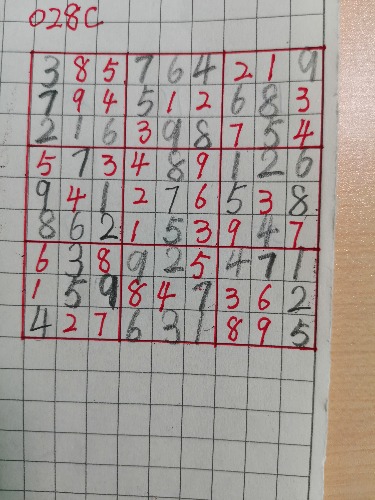 028C
3 8 5 7 6 4 2 1 9
7 9 4 5 1 2 6 8 3
2 1 6 3 9 8 7 5 4
5 7 3 4 8 9 1 2 6
9 4 1 2 7 6 5 3 8
8 6 2 1 5 3 9 4 7
6 3 8 9 2 5 4 7 1
1 5 9 8 4 7 3 6 2
4 2 7 6 3 1 8 9 5